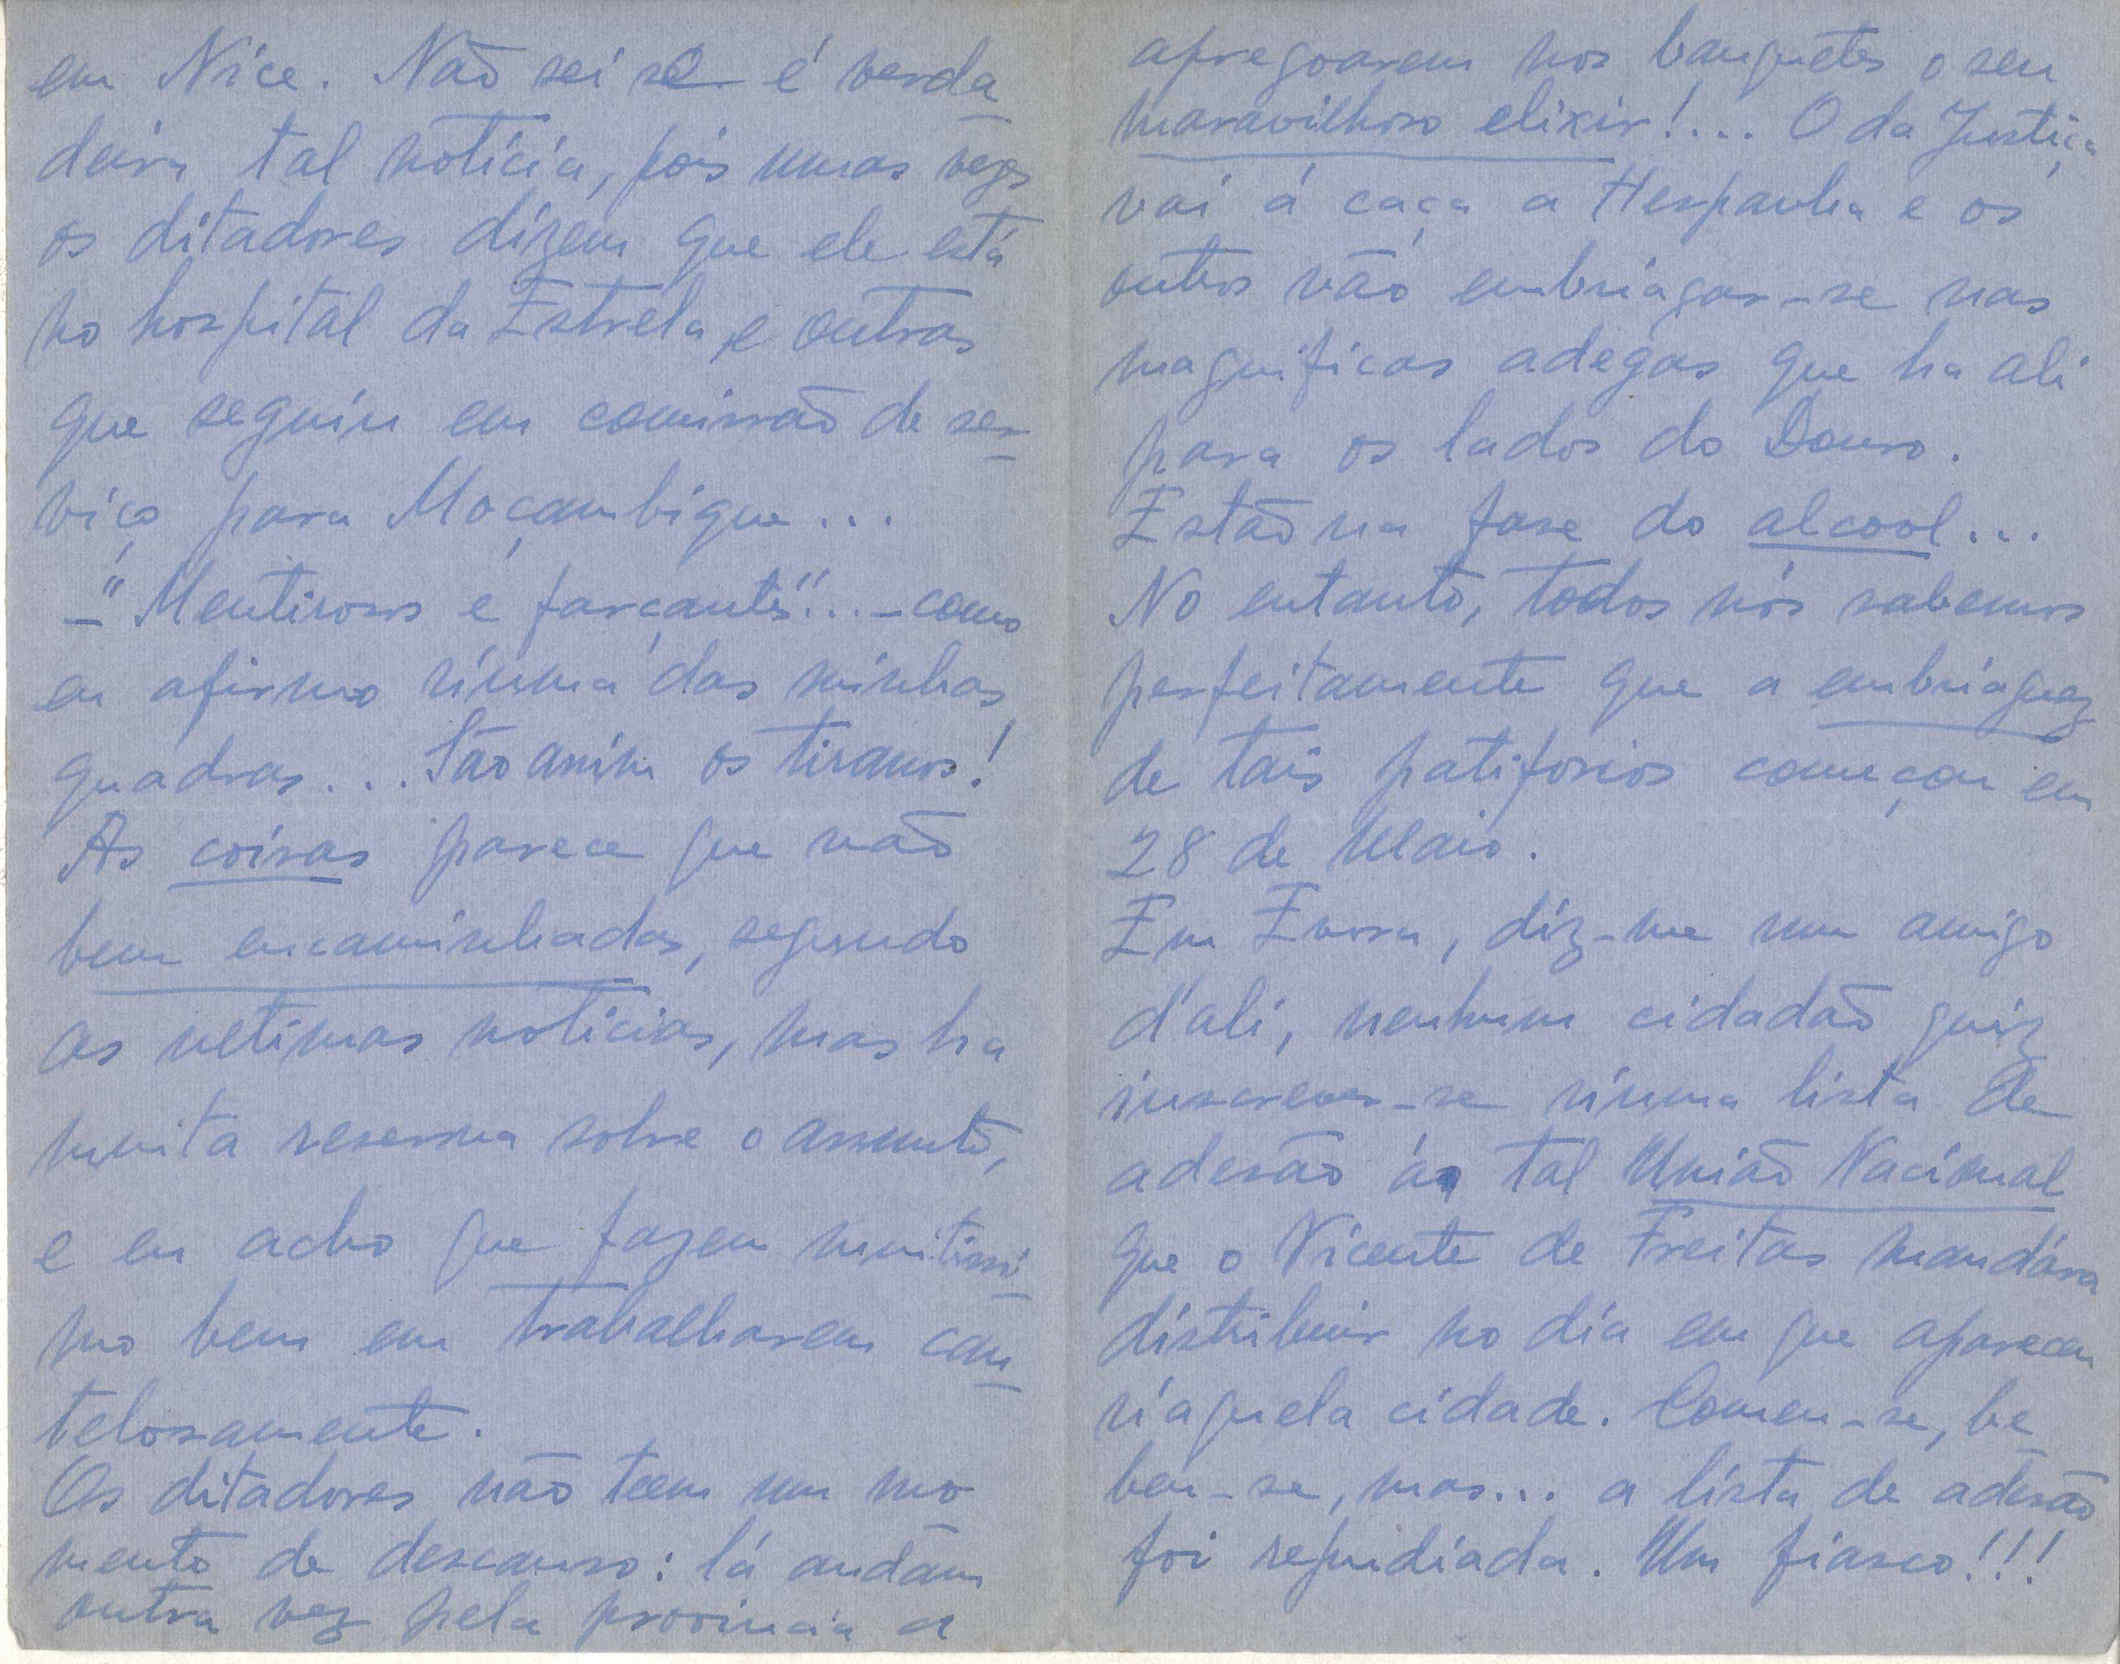 em Nice. Não sei se é verda
deira tal notícia, pois umas vezes
os ditadores dizem que ele está
no hospital da Estrela, e outras
que seguiu em comissão de ser
viço para Moçambique...
- "Mentirosos e farçantes"... - como
eu afirmo n'uma das minhas
quadras... São assim os tiranos!
As coisas parece que vão
bem encaminhadas, segundo
as ultimas notícias, mas ha
muita reserva sobre o assunto,
e eu acho que fazem muitissi
mo bem em trabalharem cau
telosamente.
Os ditadores não teem um mo
mento de descanso: lá andam
outra vez pela provincia a
apregoarem nos banquetes o seu
maravilhoso elixir!... O da Justiça
vai á caça a Hespanha e os
outros vão embriagar-se nas
magnificas adegas que ha ali
para os lados do Douro.
Estão na fase do alcool...
No entanto, todos nós sabemos
perfeitamente que a embriaguez
de tais patiforios começou em
28 de Maio.
Em Evora, diz-me um amigo
d'ali, nenhum cidadão quiz
inscrever-se n'uma lista de
adesão á tal União Nacional
que o Vicente de Freitas mandára
distribuir no dia em que apareceu
n'aquela cidade. Comeu-se, be
beu-se, mas... a lista de adesão
foi repudiada. Um fiasco!!!